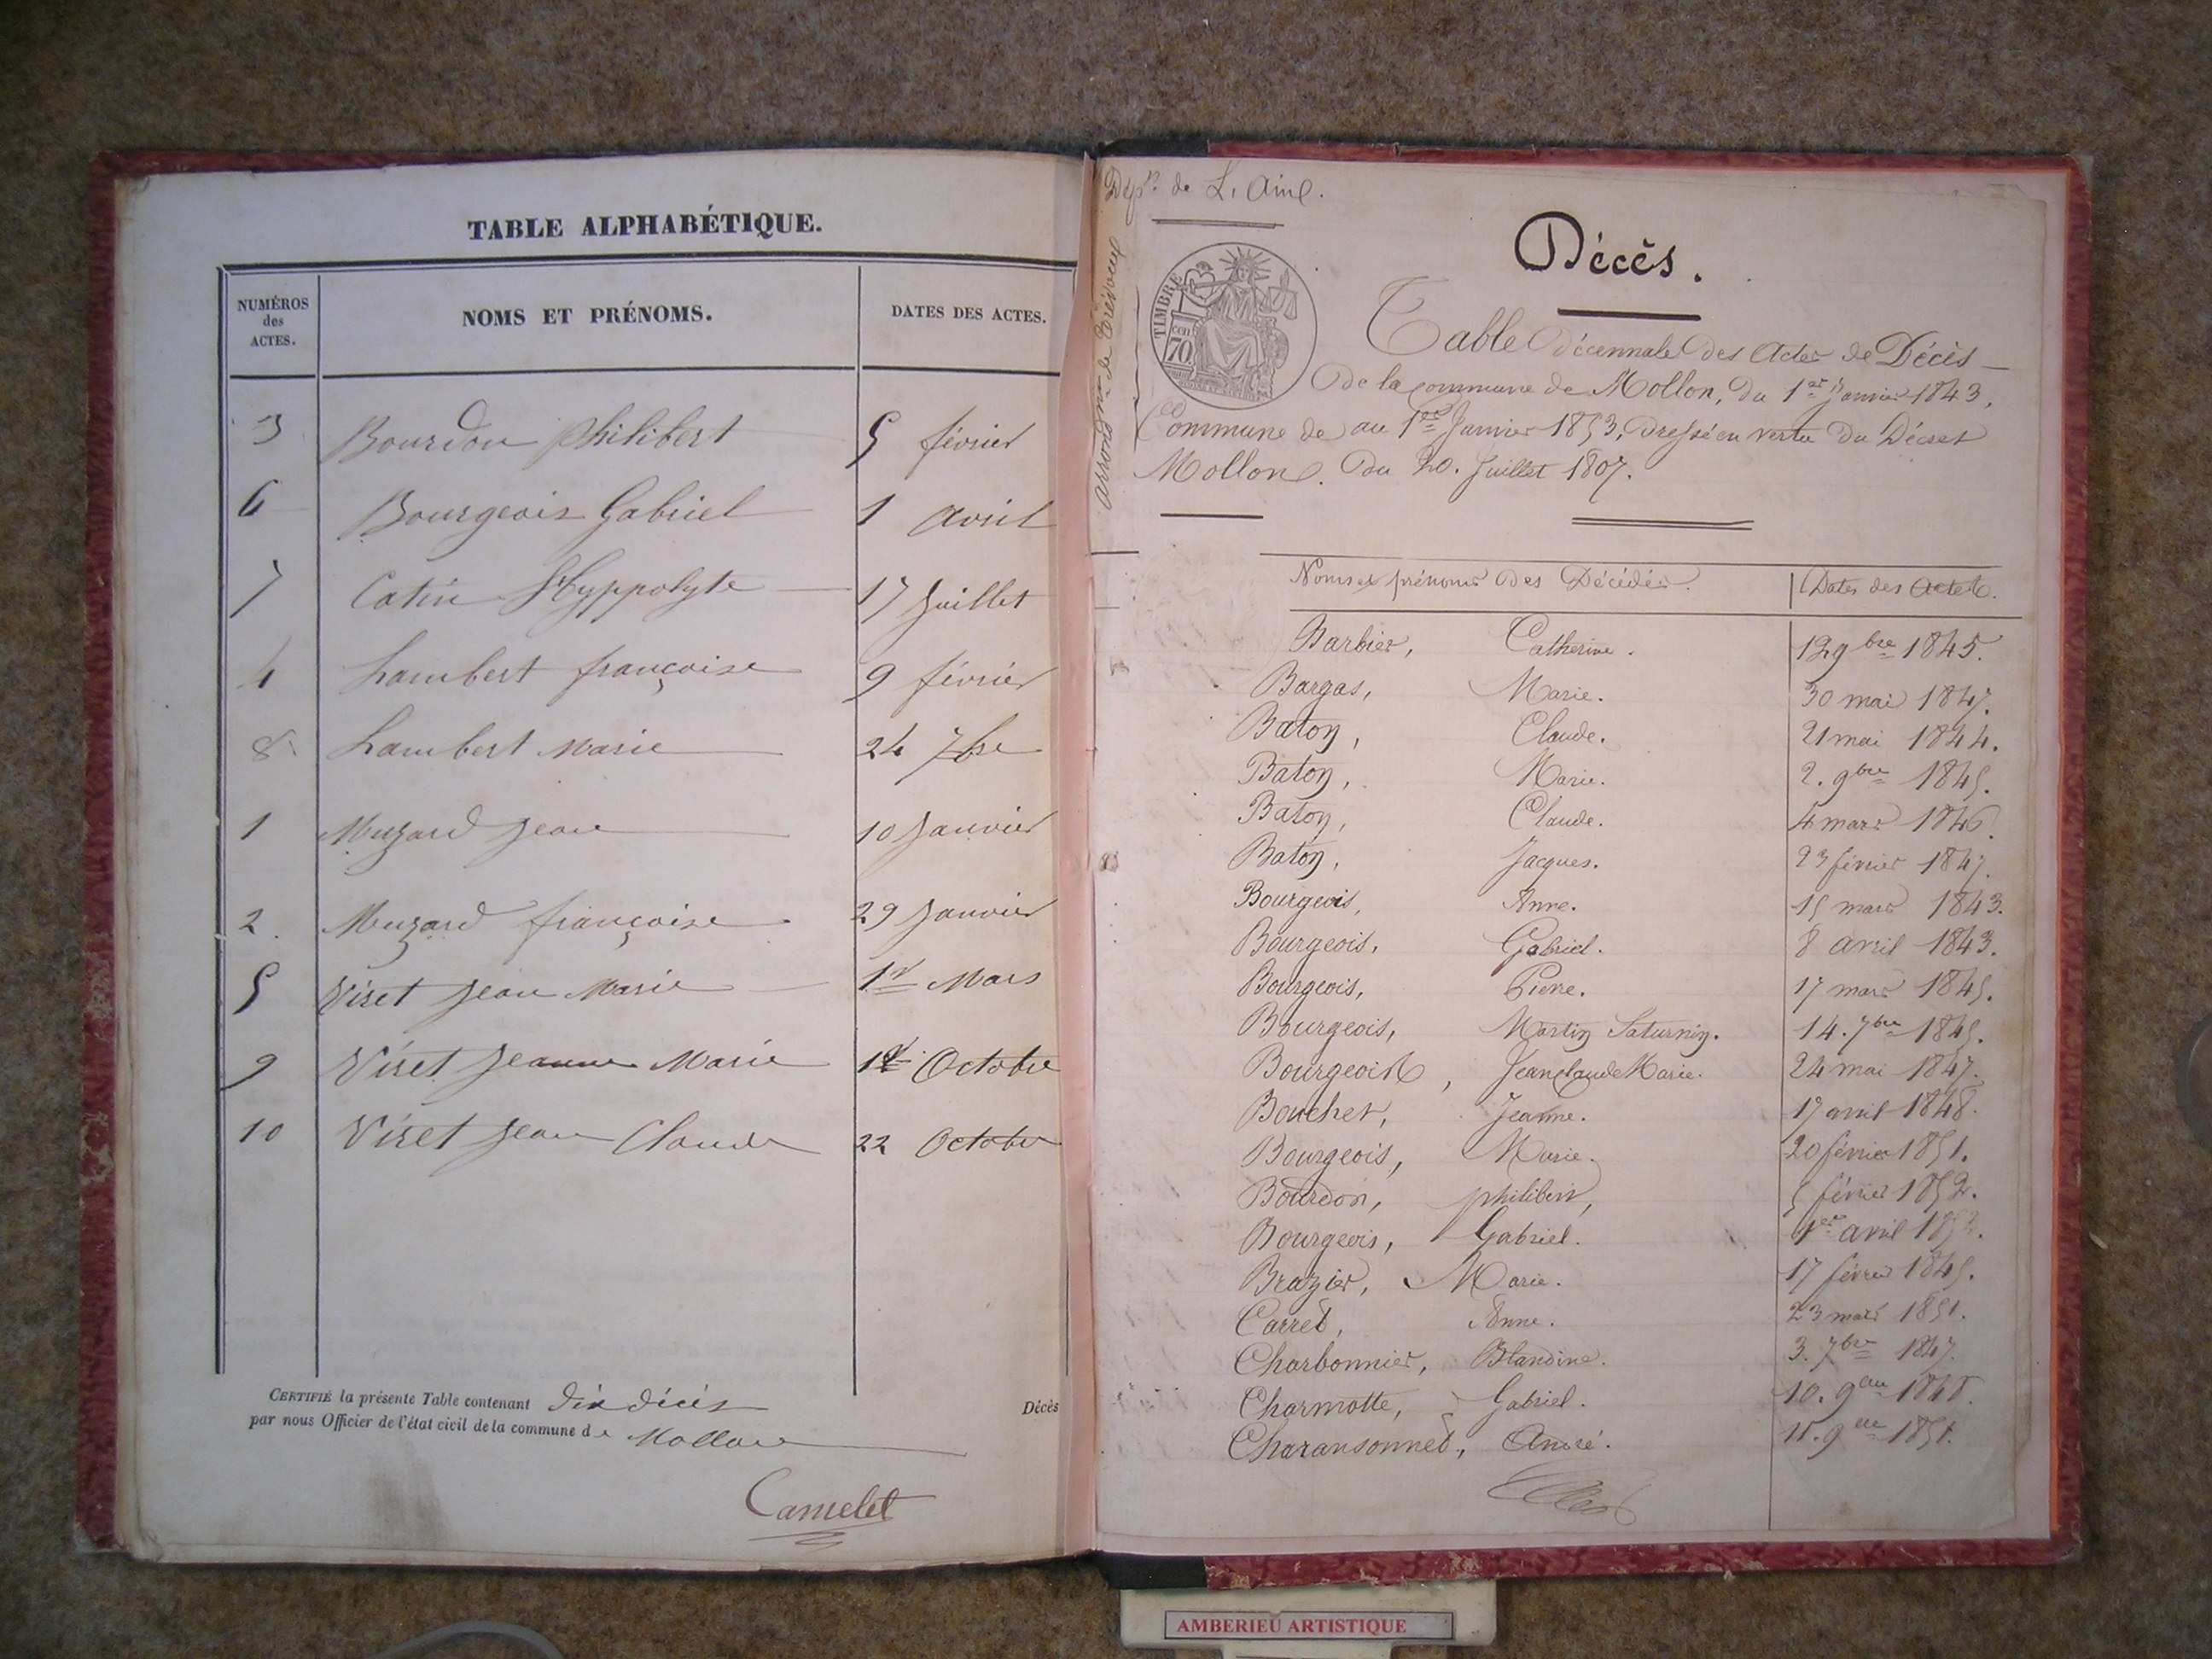 TABLE ALPHABÉTIQUE.
NUMÉROS des ACTES. NOMS ET PRÉNOMS. DATES DES ACTES.
3 Bourdon Philibert 5 février
6 Bourgeois Gabriel 1 avril
7 Catin Hyppolyte 17 Juillet
4 Lambert françoise 9 février
8 Lambert Marie 24 7bre
1 Muzard Jean 10 Janvier
2 Muzard françoise 29 Janvier
5 Viret Jean Marie 1er Mars
9 Viret Jeanne Marie Octobre
10 Viret Jean Claude 22 Octobre
CERTIFIÉ la présente Table contenant dix décès Décès
par nous Officier de l'état civil de la commune de Mollon
Camelet
Dépt. de L'Ain.
arrondmt de Trévoux
Commune de
Mollon.
TIMBRE
70
Décès.
Table décennale des Actes de Décès
de la commune de Mollon, du 1er Janvier 1843,
au 1er Janvier 1853, dressé en vertu du Décret
du 20. Juillet 1807.
Noms et prénoms des Décédés. Dates des Actes.
Barbier, Catherine. 12 9bre 1845.
Bargas, Marie. 30 mai 1847.
Baton, Claude. 21 mai 1844.
Baton, Marie. 2. 9bre 1845.
Baton, Claude. 4 mars 1846.
Baton, Jacques. 23 février 1847.
Bourgeois, Anne. 15 mars 1843.
Bourgeois, Gabriel. 8 avril 1843.
Bourgeois, Pierre. 17 mars 1845.
Bourgeois, Martin Saturnin. 14. 7bre 1845.
Bourgeois, Jean Claude Marie. 24 mai 1847.
Bouchet, Jeanne. 17 avril 1848.
Bourgeois, Marie. 20 février 1851.
Bourdon, philibert, 5 février 1852.
Bourgeois, Gabriel. 1er avril 1852.
Brazier, Marie. 17 février 1845.
Carret, Anne. 23 mars 1851.
Charbonnier, Blandine. 3. 7bre 1847.
Charmotte, Gabriel. 10. 9bre 1848.
Charansonnet, André. 11. 9bre 1851.
AMBERIEU ARTISTIQUE